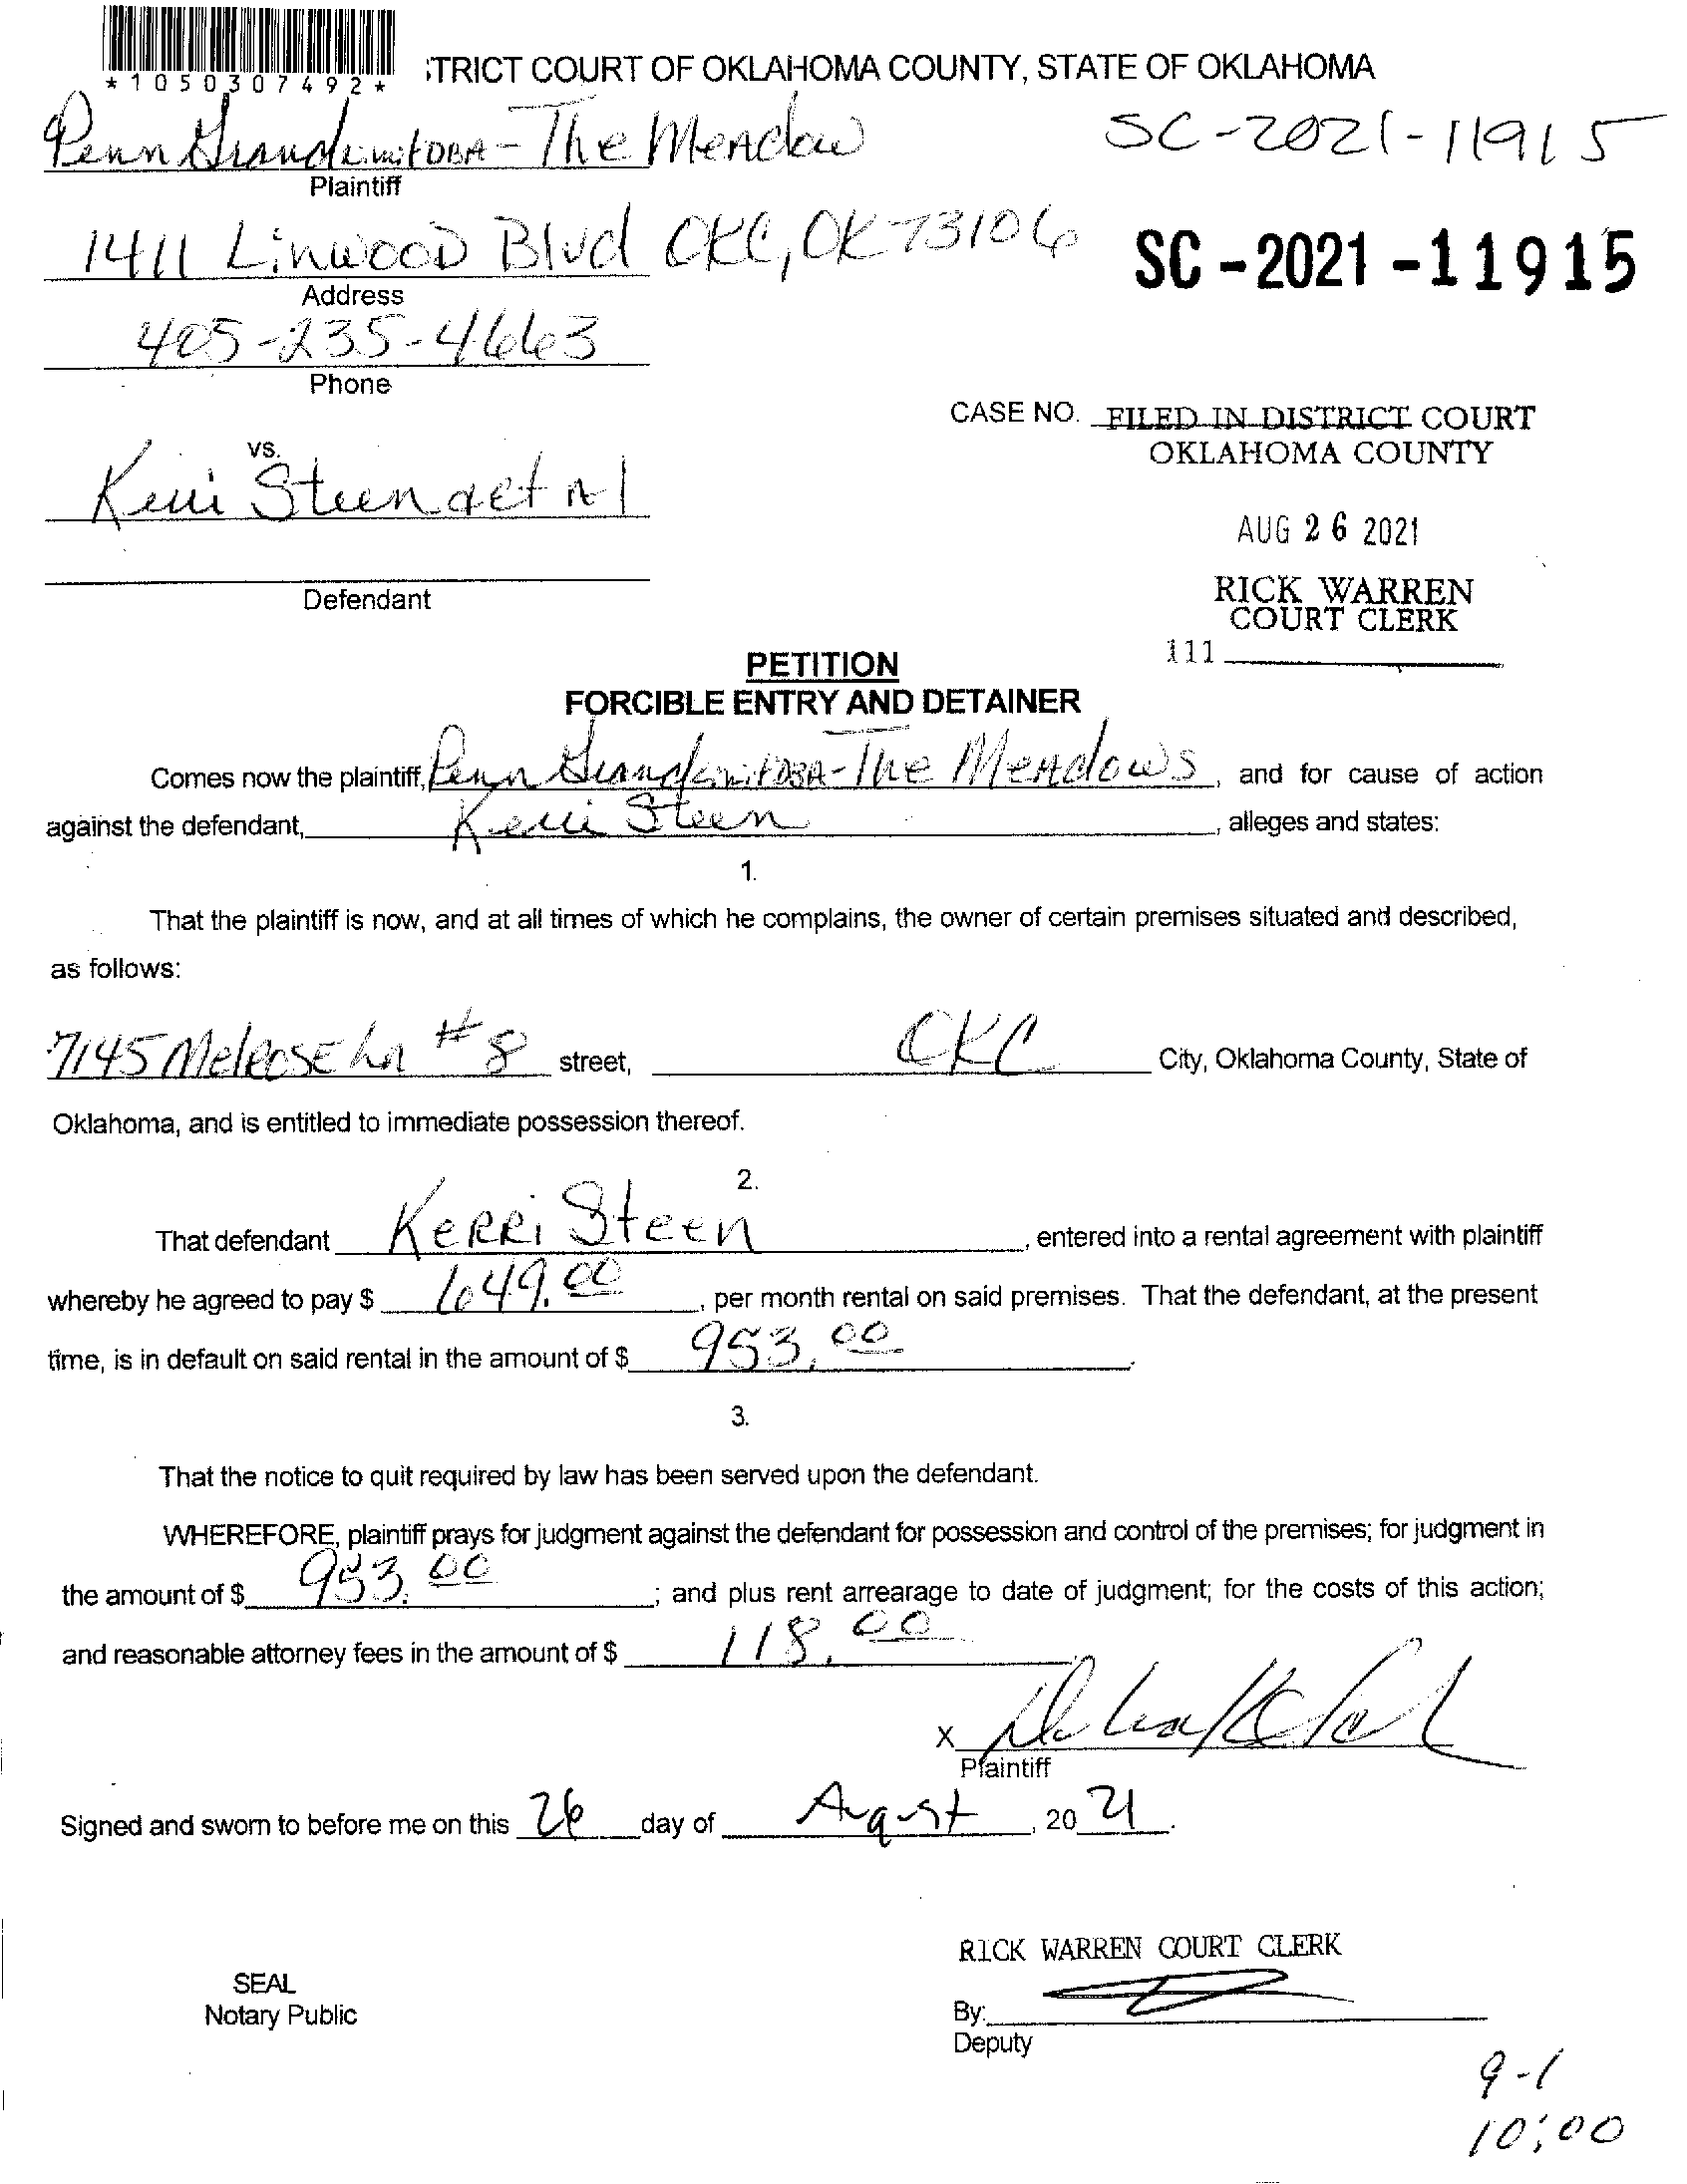 *1050307492*
TRICT COURT OF OKLAHOMA COUNTY, STATE OF OKLAHOMA
Penn DBA - The Meadow
SC-2021-11915
Plaintiff
1411 Linwood Blvd OKC, OK 73106
SC-2021-11915
Address
405-235-4663
Phone
CASE NO. FILED IN DISTRICT COURT
OKLAHOMA COUNTY
vs.
Kerri Steen aet al
AUG 26 2021
Defendant
RICK WARREN
COURT CLERK
111
PETITION
FORCIBLE ENTRY AND DETAINER
Comes now the plaintiff, Penn DBA - The Meadows, and for cause of action
against the defendant, Kerri Steen, alleges and states:
1.
That the plaintiff is now, and at all times of which he complains, the owner of certain premises situated and described,
as follows:
7145 Melrose Ln #8 street, OKC City, Oklahoma County, State of
Oklahoma, and is entitled to immediate possession thereof.
2.
That defendant Kerri Steen, entered into a rental agreement with plaintiff
whereby he agreed to pay $ 649.00, per month rental on said premises. That the defendant, at the present
time, is in default on said rental in the amount of $ 953.00.
3.
That the notice to quit required by law has been served upon the defendant.
WHEREFORE, plaintiff prays for judgment against the defendant for possession and control of the premises; for judgment in
the amount of $ 953.00; and plus rent arrearage to date of judgment; for the costs of this action;
and reasonable attorney fees in the amount of $ 118.00
X
Plaintiff
Signed and sworn to before me on this 26 day of August, 2021.
RICK WARREN COURT CLERK
SEAL
Notary Public
By:
Deputy
9-1
10:00